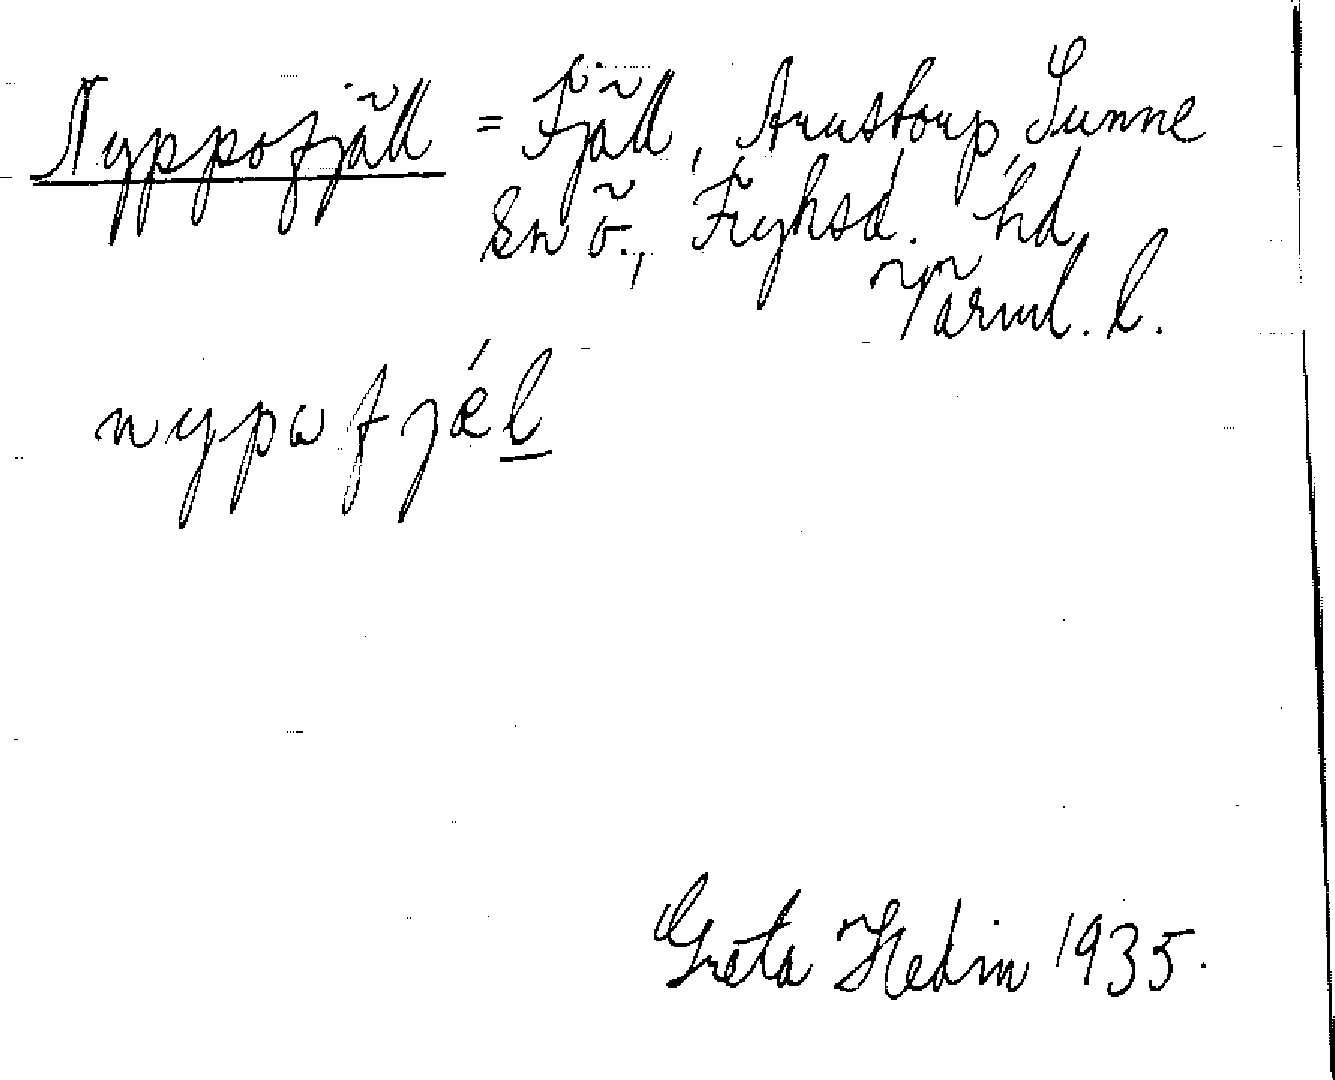 Nyppofjäll = Fjäll, Arnstorp, Sunne
sn ö., Fryksd. hd,
Värml. l.
nypofjäl
Greta Hedin 1935.